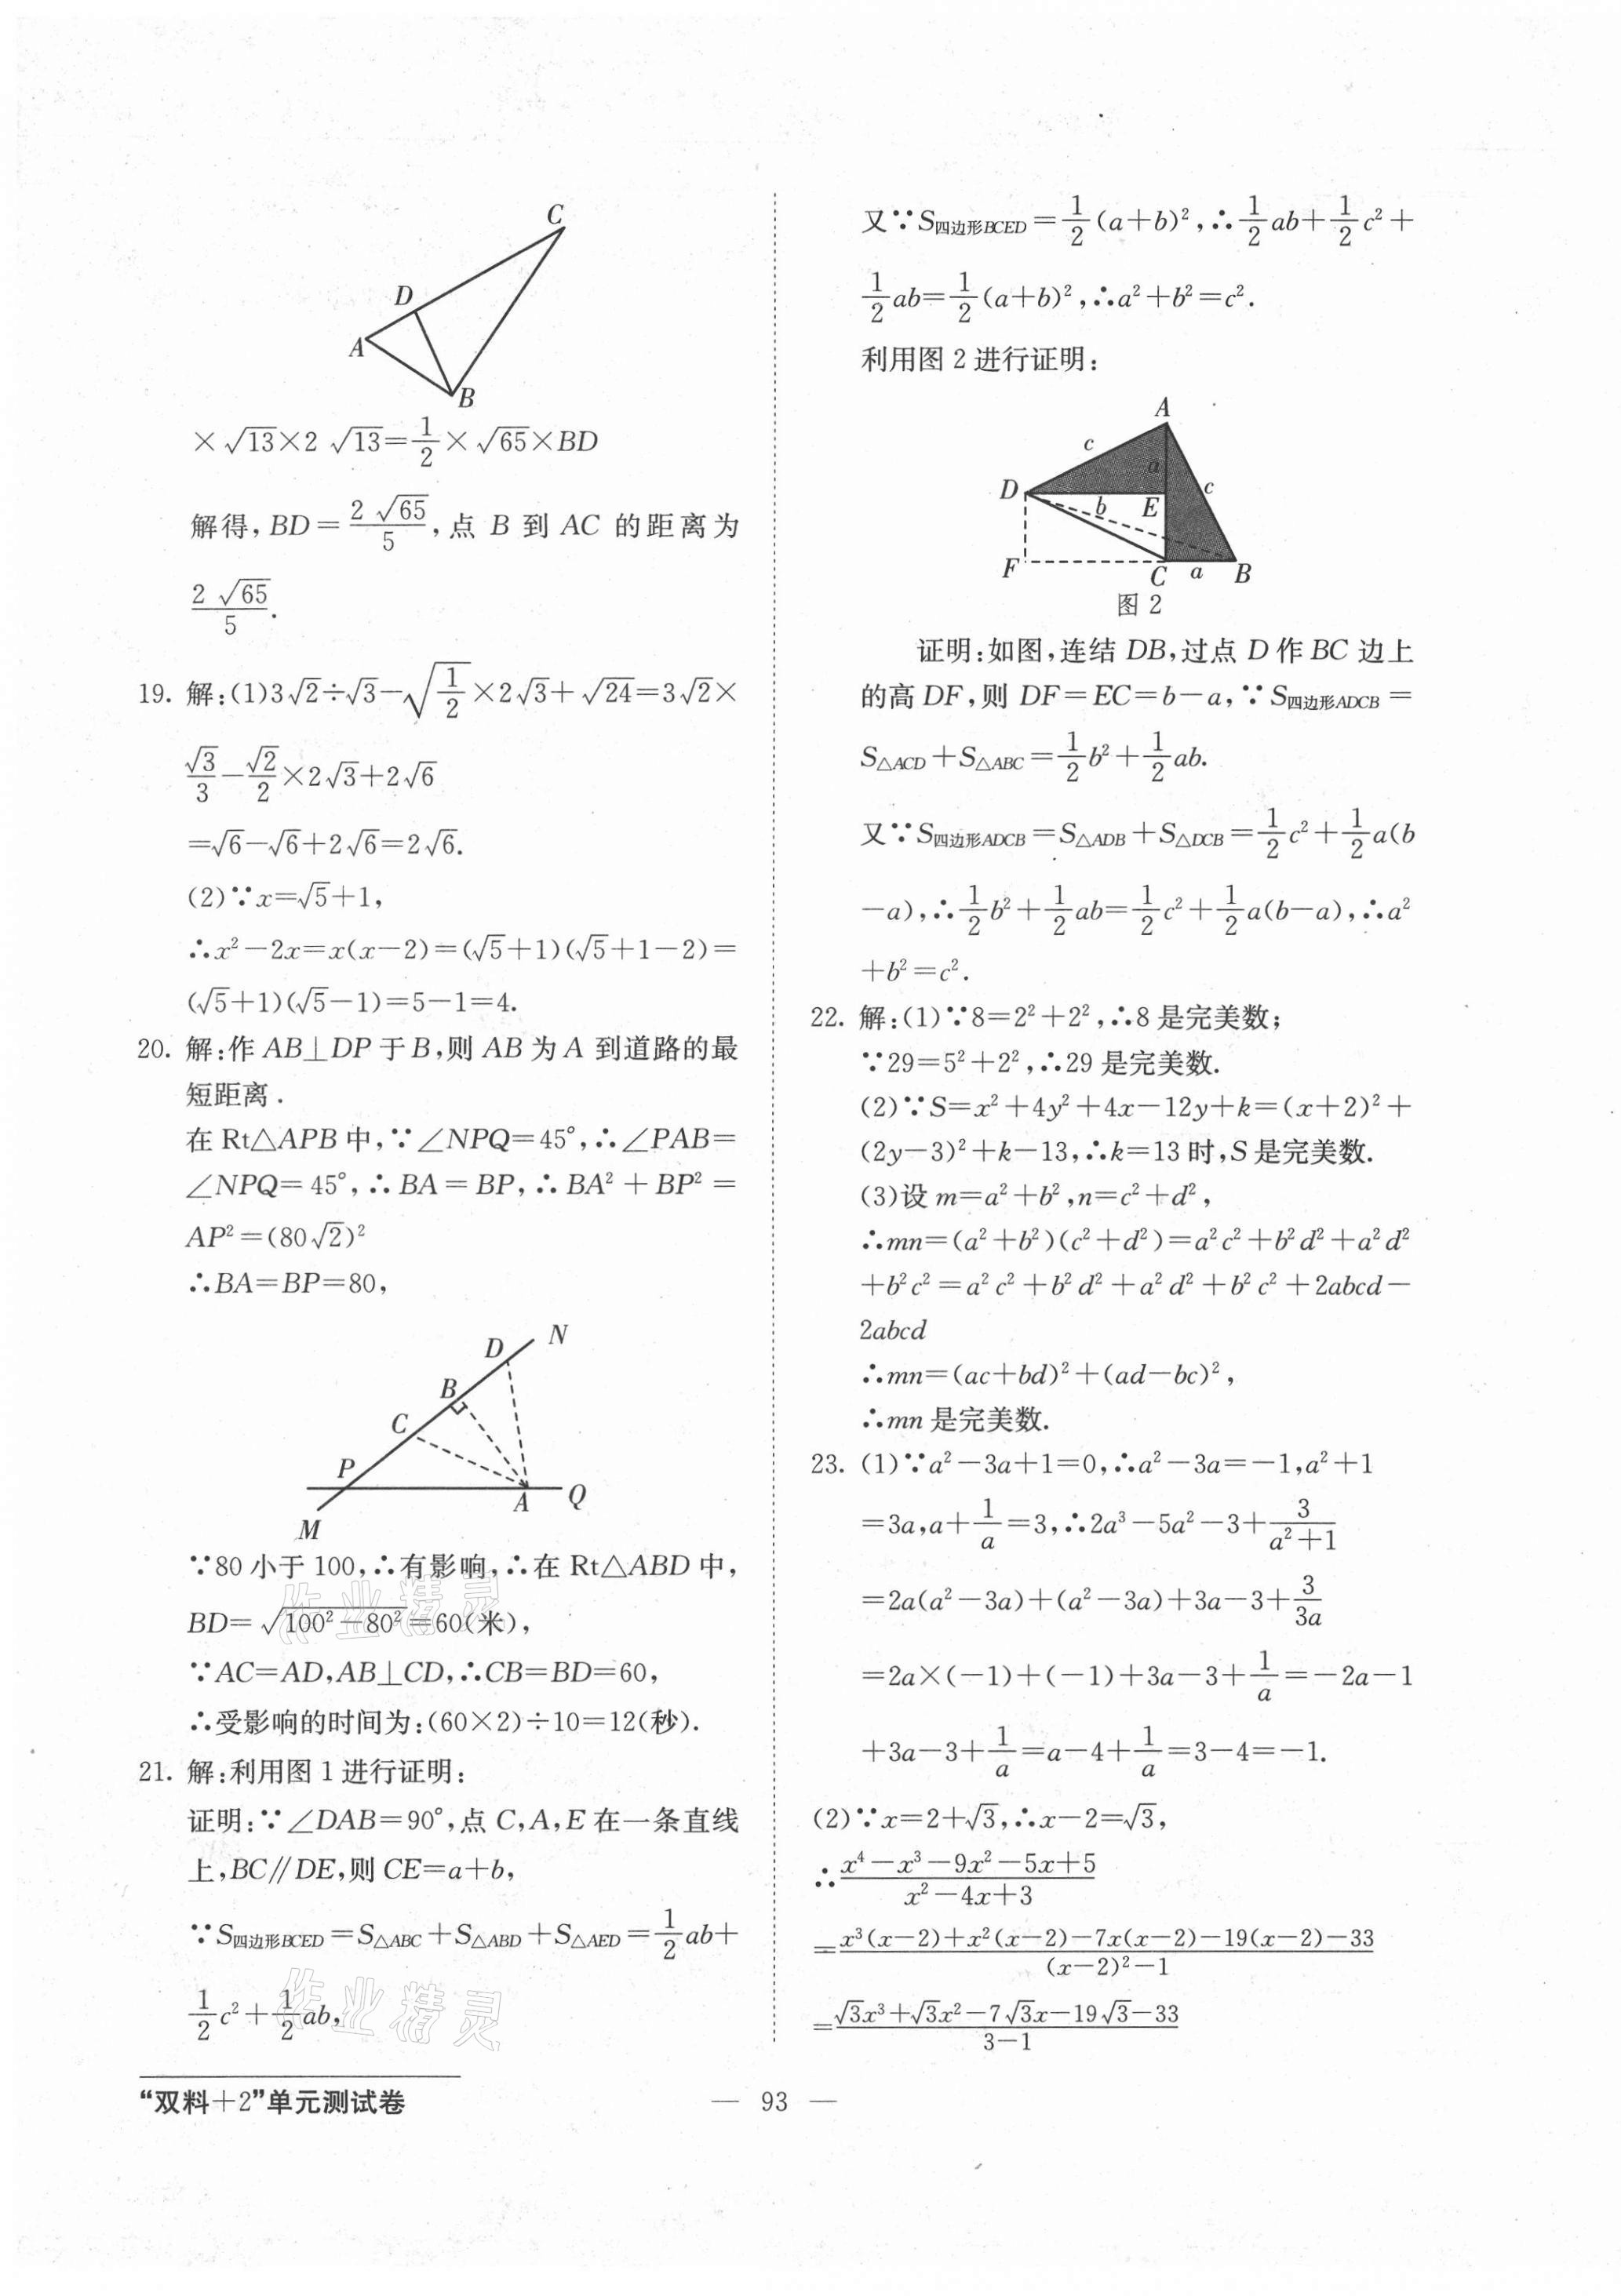 C
D
A
B
×√13×2√13=1/2×√65×BD
解得,BD=2√65/5,点 B 到 AC 的距离为
2√65/5.
19. 解:(1)3√2÷√3-√(1/2)×2√3+√24=3√2×
√3/3-√2/2×2√3+2√6
=√6-√6+2√6=2√6.
(2)∵x=√5+1,
∴x²-2x=x(x-2)=(√5+1)(√5+1-2)=
(√5+1)(√5-1)=5-1=4.
20. 解:作 AB⊥DP 于 B,则 AB 为 A 到道路的最
短距离.
在 Rt△APB 中,∵∠NPQ=45°,∴∠PAB=
∠NPQ=45°,∴BA=BP,∴BA²+BP²=
AP²=(80√2)²
∴BA=BP=80,
N
D
B
C
P
A
Q
M
∵80 小于 100,∴有影响,∴在 Rt△ABD 中,
BD=√(100²-80²)=60(米),
∵AC=AD,AB⊥CD,∴CB=BD=60,
∴受影响的时间为:(60×2)÷10=12(秒).
21. 解:利用图 1 进行证明:
证明:∵∠DAB=90°,点 C,A,E 在一条直线
上,BC∥DE,则 CE=a+b,
∵S四边形BCED=S△ABC+S△ABD+S△AED=1/2ab+
1/2c²+1/2ab,
作业精灵
作业精灵
又∵S四边形BCED=1/2(a+b)²,∴1/2ab+1/2c²+
1/2ab=1/2(a+b)²,∴a²+b²=c².
利用图 2 进行证明:
A
c
a
D
b
E
c
F
C
a
B
图 2
证明:如图,连结 DB,过点 D 作 BC 边上
的高 DF,则 DF=EC=b-a,∵S四边形ADCB=
S△ACD+S△ABC=1/2b²+1/2ab.
又∵S四边形ADCB=S△ADB+S△DCB=1/2c²+1/2a(b
-a),∴1/2b²+1/2ab=1/2c²+1/2a(b-a),∴a²
+b²=c².
22. 解:(1)∵8=2²+2²,∴8 是完美数;
∵29=5²+2²,∴29 是完美数.
(2)∵S=x²+4y²+4x-12y+k=(x+2)²+
(2y-3)²+k-13,∴k=13 时,S 是完美数.
(3)设 m=a²+b²,n=c²+d²,
∴mn=(a²+b²)(c²+d²)=a²c²+b²d²+a²d²
+b²c²=a²c²+b²d²+a²d²+b²c²+2abcd-
2abcd
∴mn=(ac+bd)²+(ad-bc)²,
∴mn 是完美数.
23. (1)∵a²-3a+1=0,∴a²-3a=-1,a²+1
=3a,a+1/a=3,∴2a³-5a²-3+3/(a²+1)
=2a(a²-3a)+(a²-3a)+3a-3+3/3a
=2a×(-1)+(-1)+3a-3+1/a=-2a-1
+3a-3+1/a=a-4+1/a=3-4=-1.
(2)∵x=2+√3,∴x-2=√3,
∴(x⁴-x³-9x²-5x+5)/(x²-4x+3)
=(x³(x-2)+x²(x-2)-7x(x-2)-19(x-2)-33)/((x-2)²-1)
=(√3x³+√3x²-7√3x-19√3-33)/(3-1)
“双料+2”单元测试卷
— 93 —